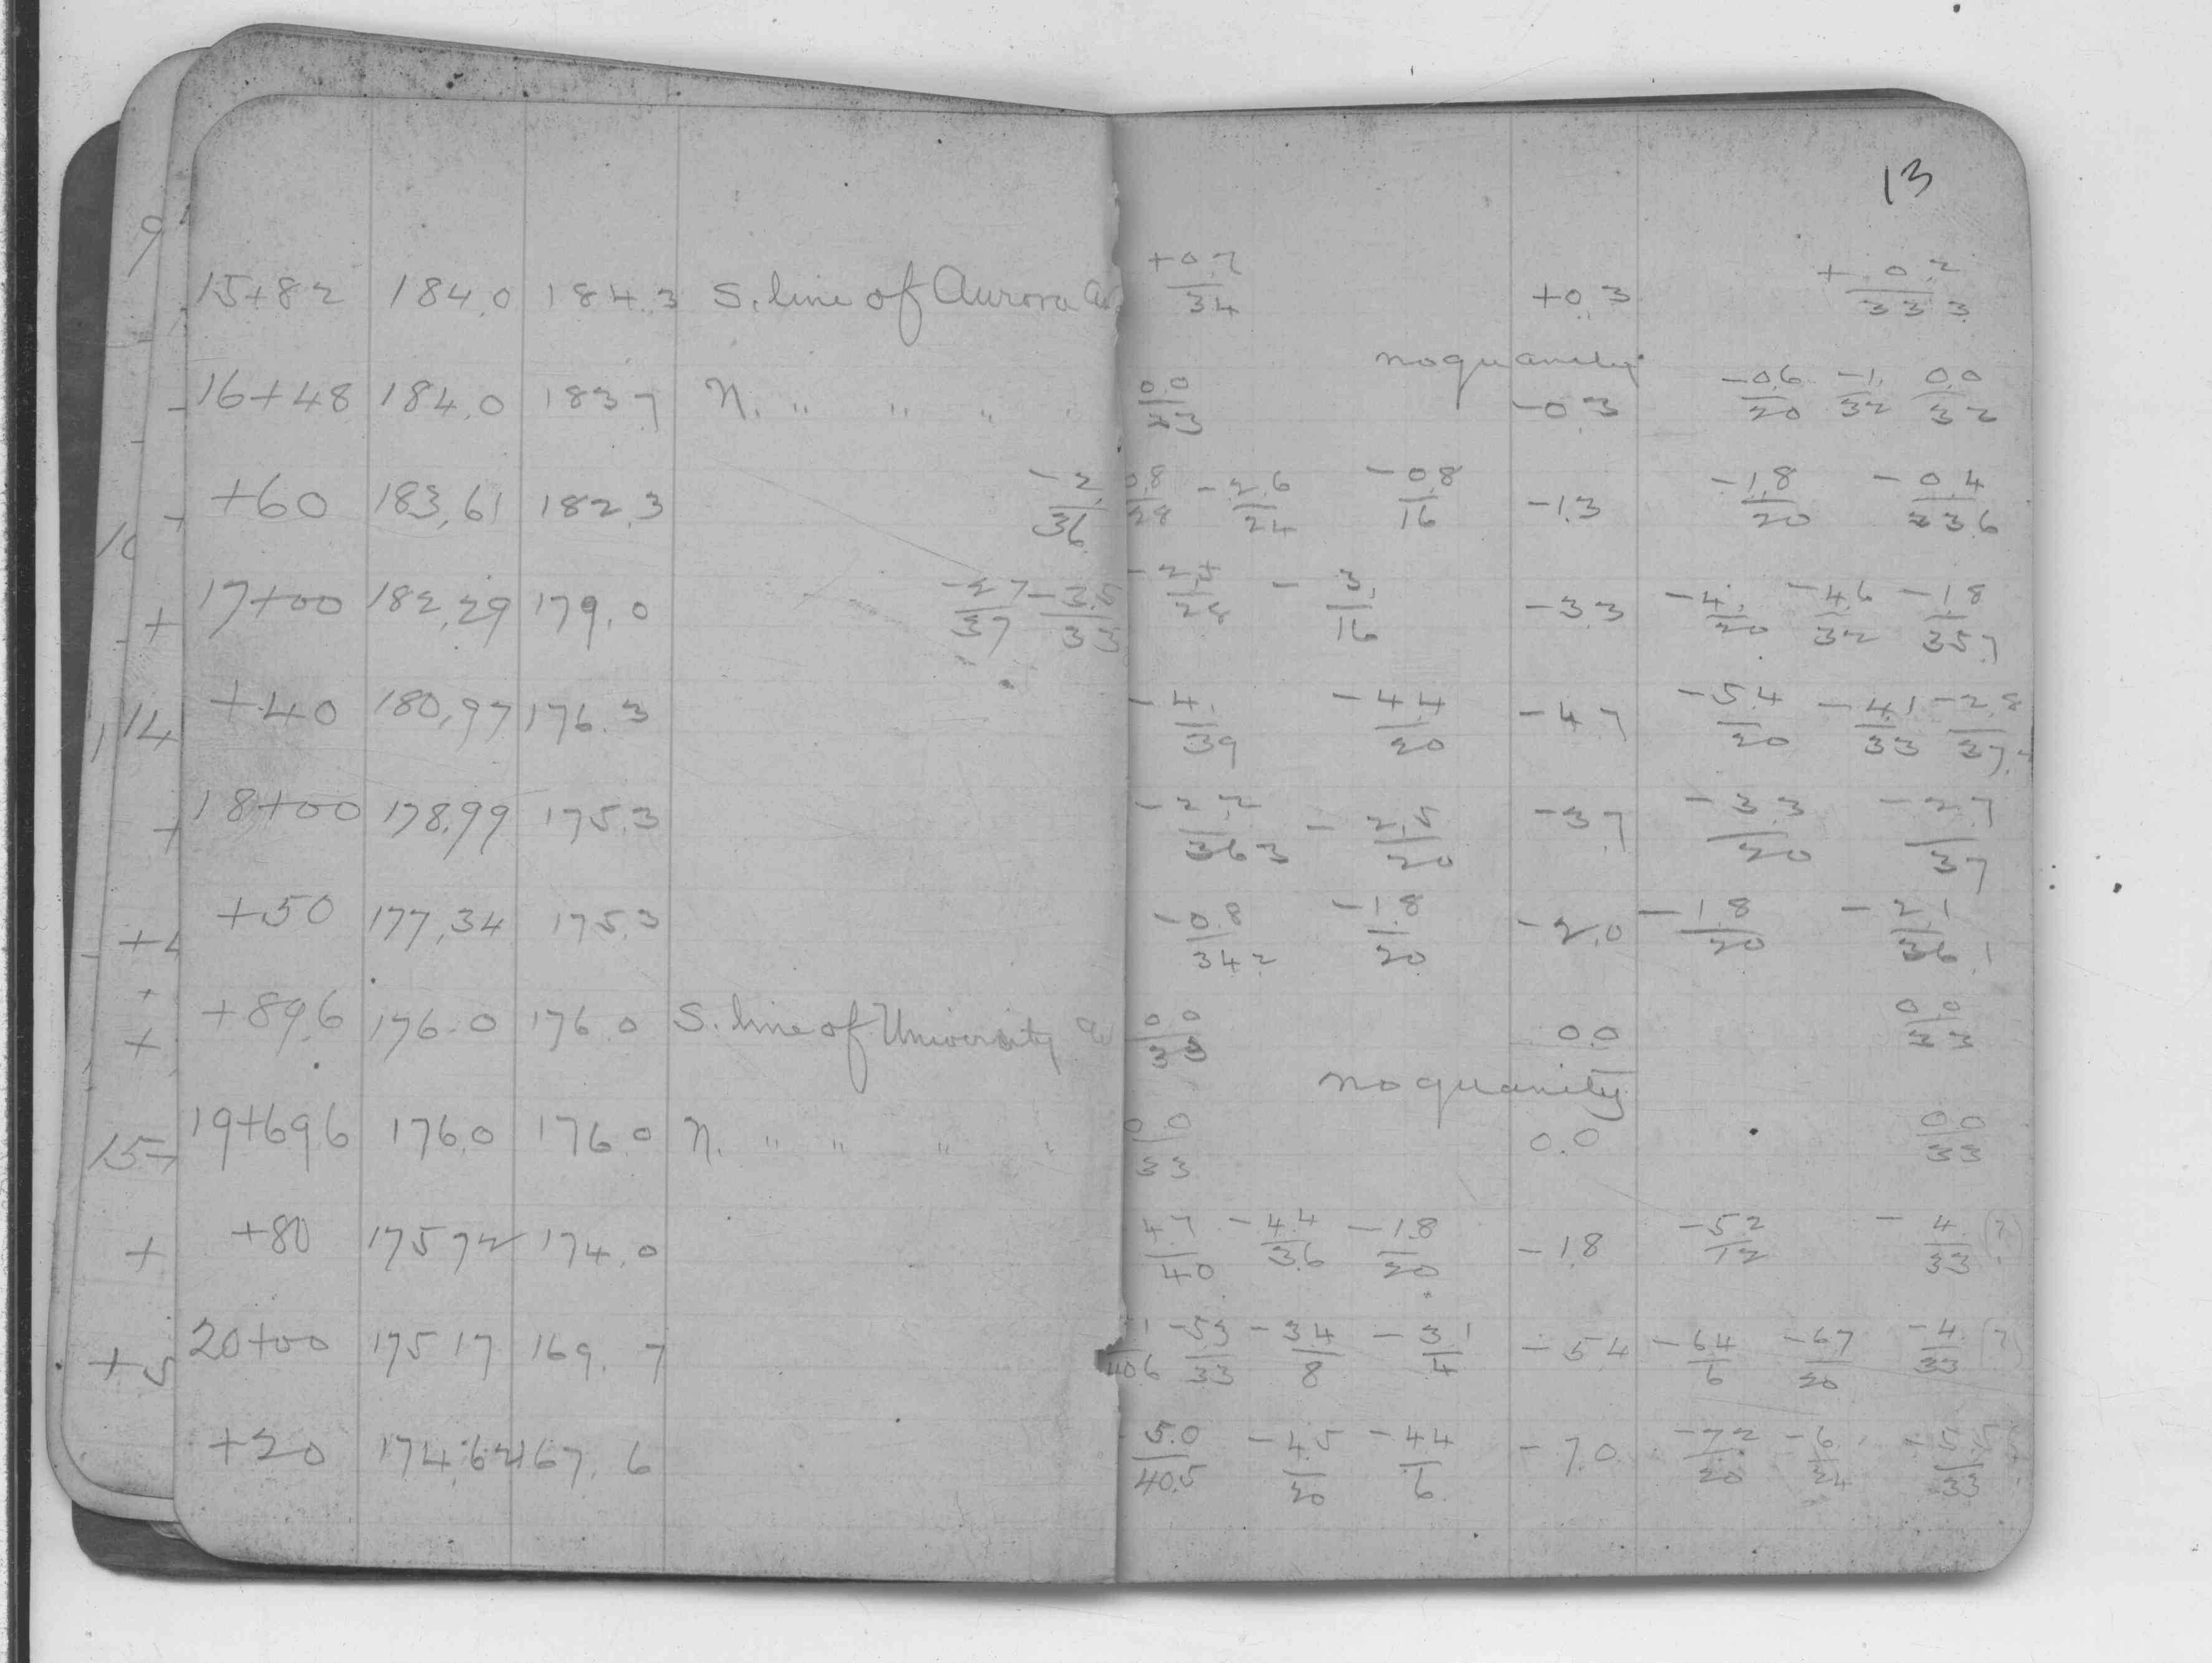 13
15+82 184.0 184.3 S. line of Aurora +0.2/34 +0.3 +0.2/33.3
no quanity
16+48 184.0 183.7 N. " " " 0.0/33 -0.3 -0.6/20 -1./32 0.0/32
+60 183.61 182.3 -2./36 0.8/28 -2.6/24 -0.8/16 -1.3 -1.8/20 -0.4/33.6
17+00 182.29 179.0 -2.7/37 -3.5/33 -2.4/28 -3./16 -3.3 -4./20 -4.6/32 -1.8/35.7
+40 180.97 176.3 -4./39 -4.4/20 -4.7 -5.4/20 -4.1/33 -2.8/37.
18+00 178.99 175.3 -2.2/36.3 -2.5/20 -3.7 -3.3/20 -2.7/37
+50 177.34 175.3 -0.8/34.2 -1.8/20 -2.0 -1.8/20 -2.1/36.1
+89.6 176.0 176.0 S. line of University 0.0/33 0.0 0.0/33
no quanity
19+69.6 176.0 176.0 N. " " " " 0.0/33 0.0 0.0/33
+80 175.72 174.0 4.7/40 -4.4/36 -1.8/20 -1.8 -5.2/12 -4./33 (?)
20+00 175.17 169.7 1/40.6 -5.3/33 -3.4/8 -3.1/4 -5.4 -6.4/6 -6.7/20 -4./33 (?)
+20 174.62 167.6 5.0/40.5 -4.5/20 -4.4/6 -7.0 -7.2/20 -6./24